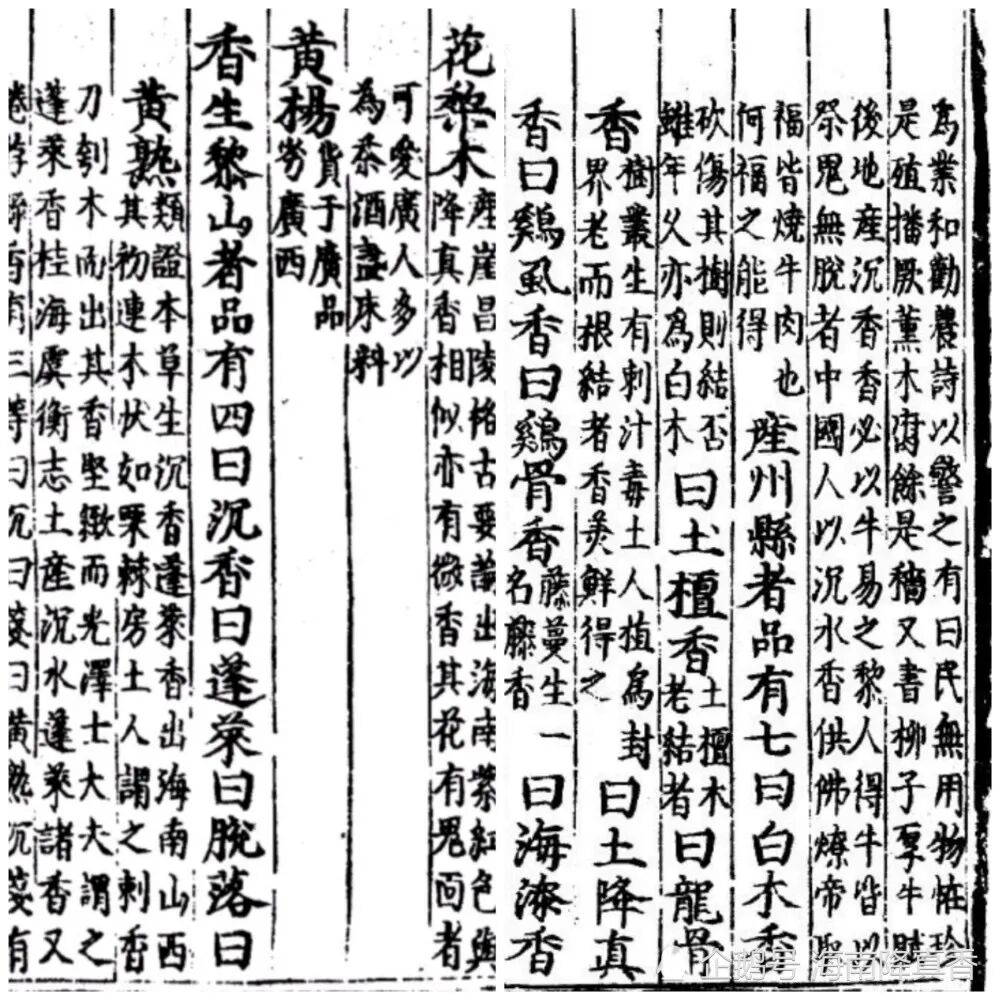 為業和勸農詩以警之有曰民無用物牲珍
是殖播厥薰木腐餘是穡又書柳子厚牛賦
後地産沉香香必以牛易之黎人得牛皆以
祭鬼無脫者中國人以沉水香供佛燎帝
福皆燒牛肉也
何福之能得
産州縣者品有七曰白木香
砍傷其樹則結否
雖年久亦為白木
曰土檀香
土檀木
老結者
曰龍骨
香
樹叢生有刺汁毒土人植為封
界老而根結者香美鮮得之
曰土降真
香曰鷄虱香曰鷄骨香
藤蔓生一
名藤香
曰海漆香
花黎木
産崖昌陵格古要論出海南紫紅色與
降真香相似亦有微香其花有鬼面者
可愛廣人多以
為黍酒盞床料
黄楊
貨于廣品
劣廣西
香生黎山者品有四曰沉香曰蓬萊曰脫落曰
黄熟
類證本草生沉香蓬萊香出海南山西
其初連木狀如栗棘房土人謂之刺香
刀刳木而出其香堅緻而光澤士大夫謂之
蓬萊香桂海虞衡志土産沉水蓬萊諸香又
企鹅号 海南绛真香